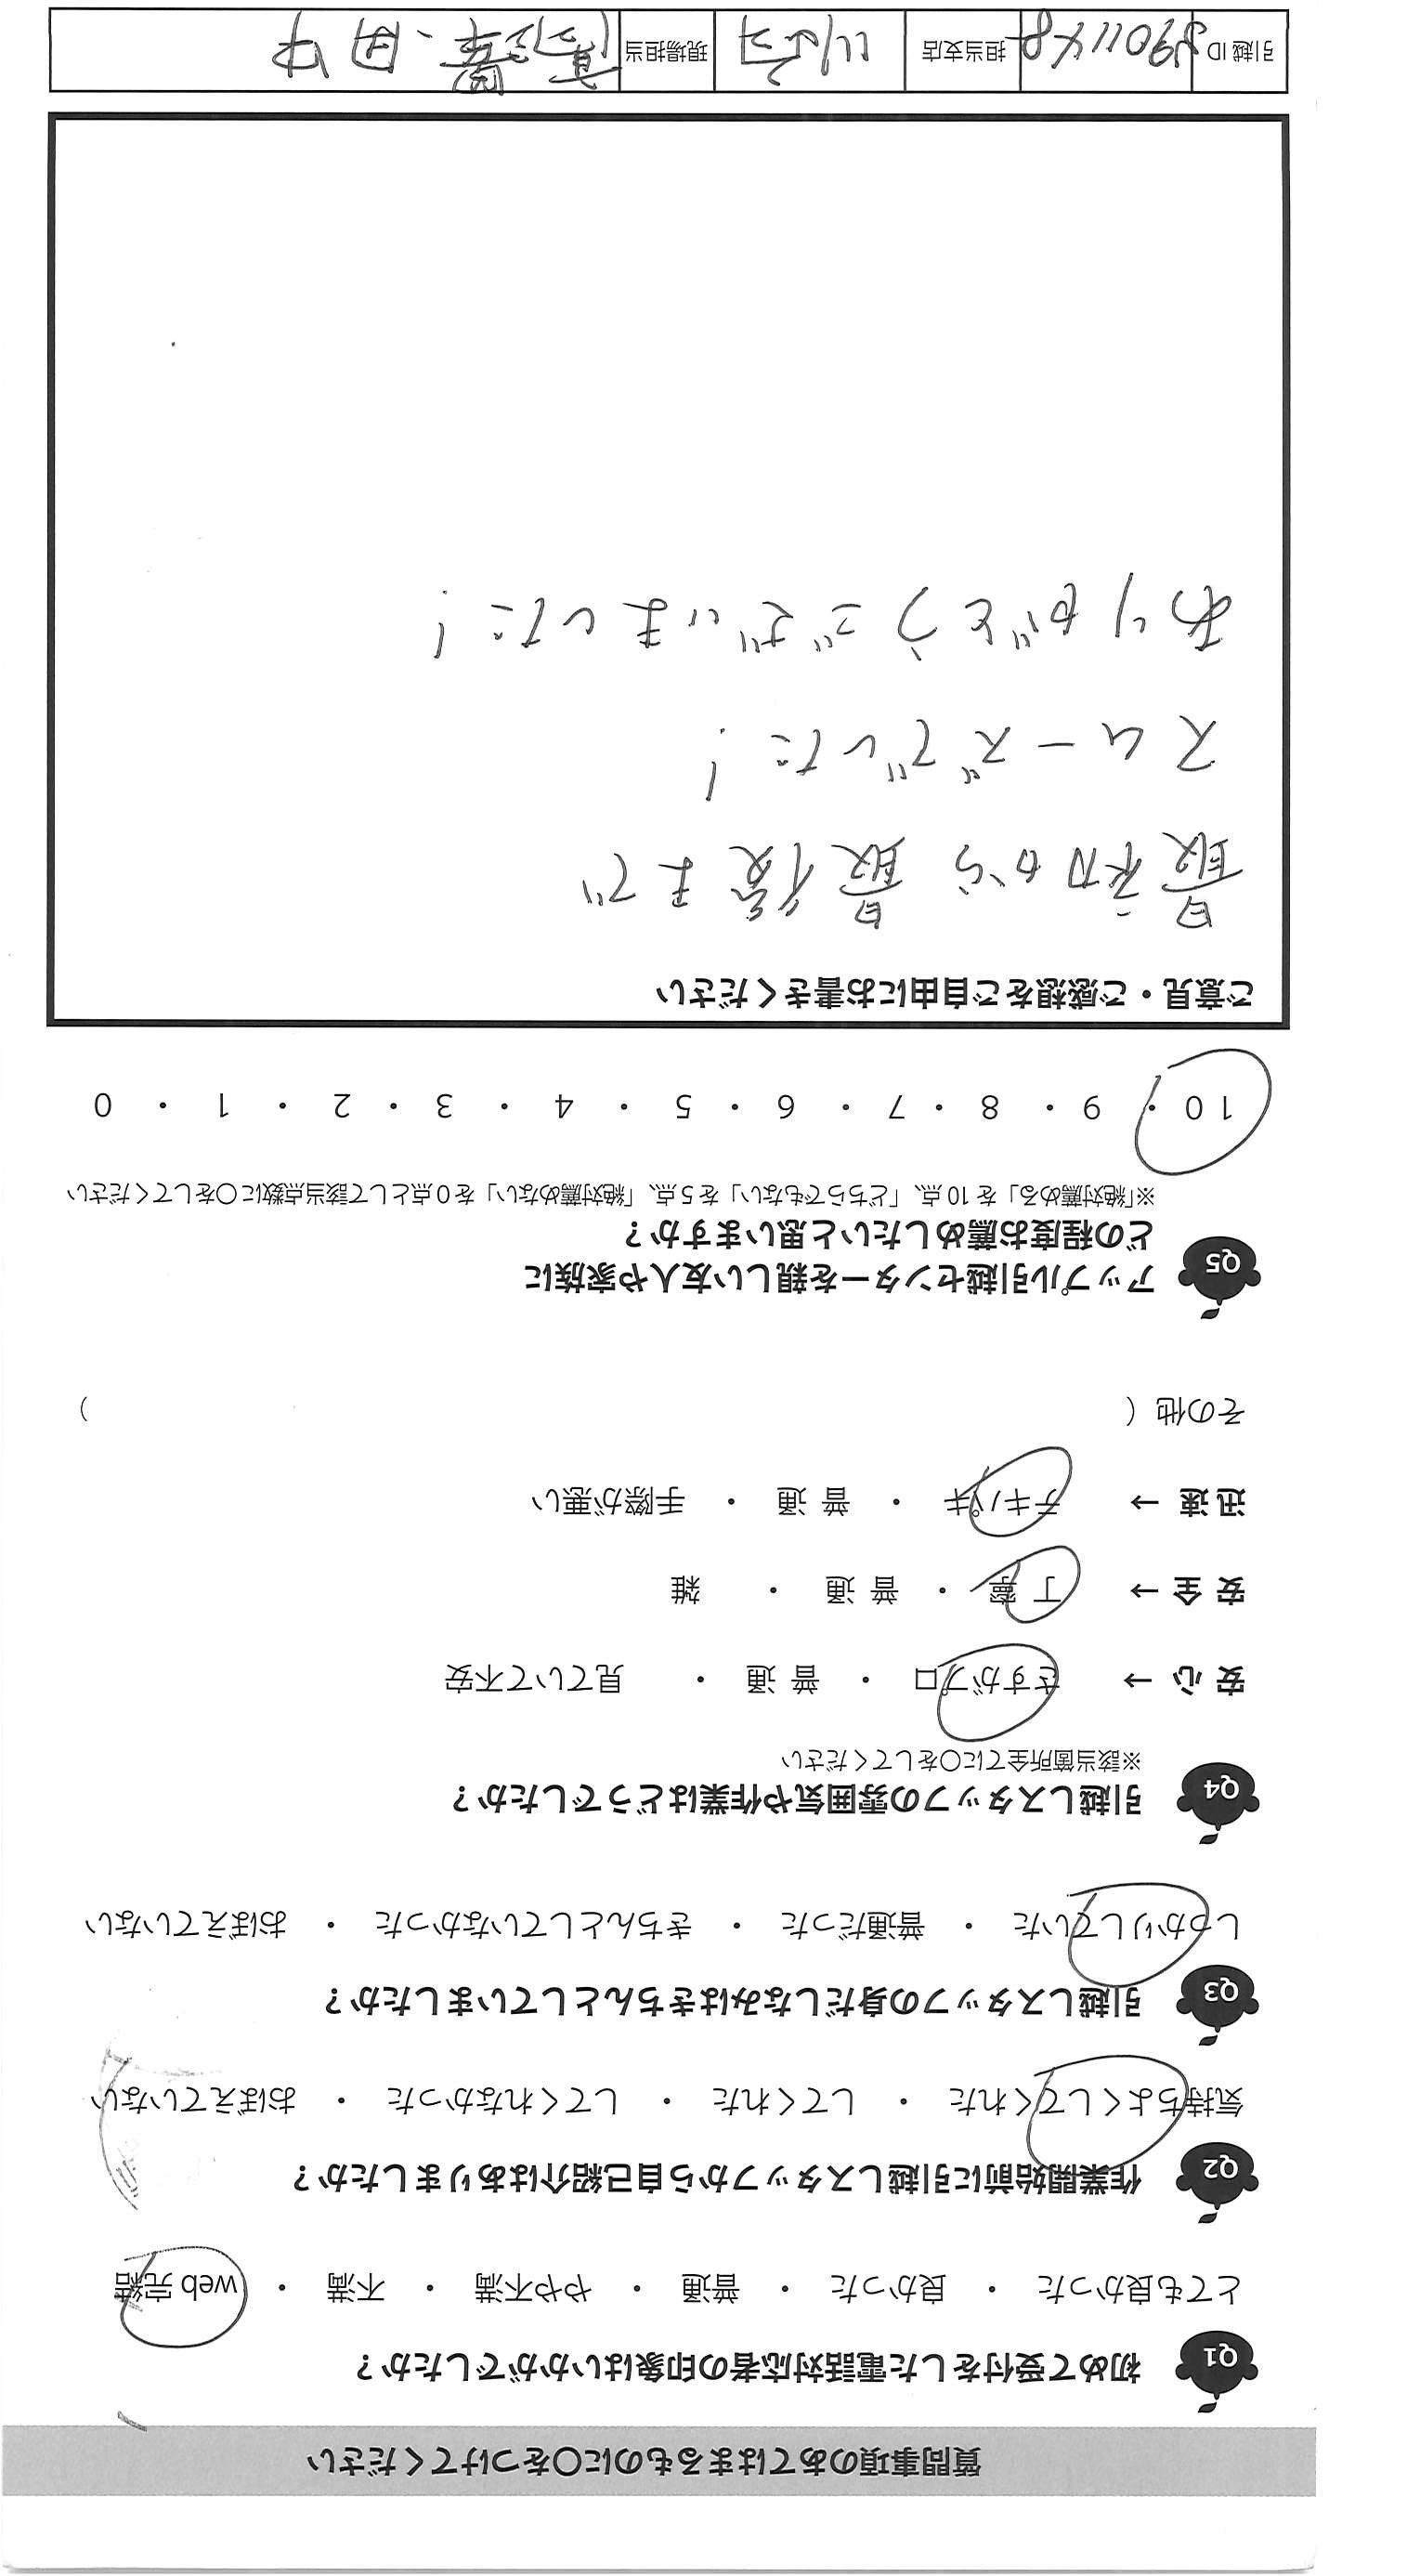 質問事項のあてはまるものに○をつけてください
Q1 初めて受付をした電話対応者の印象はいかがでしたか？
とても良かった ・ 良かった ・ 普通 ・ やや不満 ・ 不満 ・ web 完結
Q2 作業開始前に引越しスタッフから自己紹介はありましたか？
気持ちよくしてくれた ・ してくれた ・ してくれなかった ・ おぼえていない
Q3 引越しスタッフの身だしなみはきちんとしていましたか？
しっかりしていた ・ 普通だった ・ きちんとしていなかった ・ おぼえていない
Q4 引越しスタッフの雰囲気や作業はどうでしたか？
※該当箇所全てに○をしてください
安 心 → さすがプロ ・ 普 通 ・ 見ていて不安
安 全 → 丁 寧 ・ 普 通 ・ 雑
迅 速 → テキパキ ・ 普 通 ・ 手際が悪い
その他（ ）
Q5 アップル引越センターを親しい友人や家族に
どの程度お薦めしたいと思いますか？
※「絶対薦める」を 10 点、「どちらでもない」を 5 点、「絶対薦めない」を 0 点として該当点数に○をしてください
10 ・ 9 ・ 8 ・ 7 ・ 6 ・ 5 ・ 4 ・ 3 ・ 2 ・ 1 ・ 0
ご意見・ご感想をご自由にお書きください
最初から最後まで
スムーズでした！
ありがとうございました！
引越 ID 担当支店 現場担当 田中